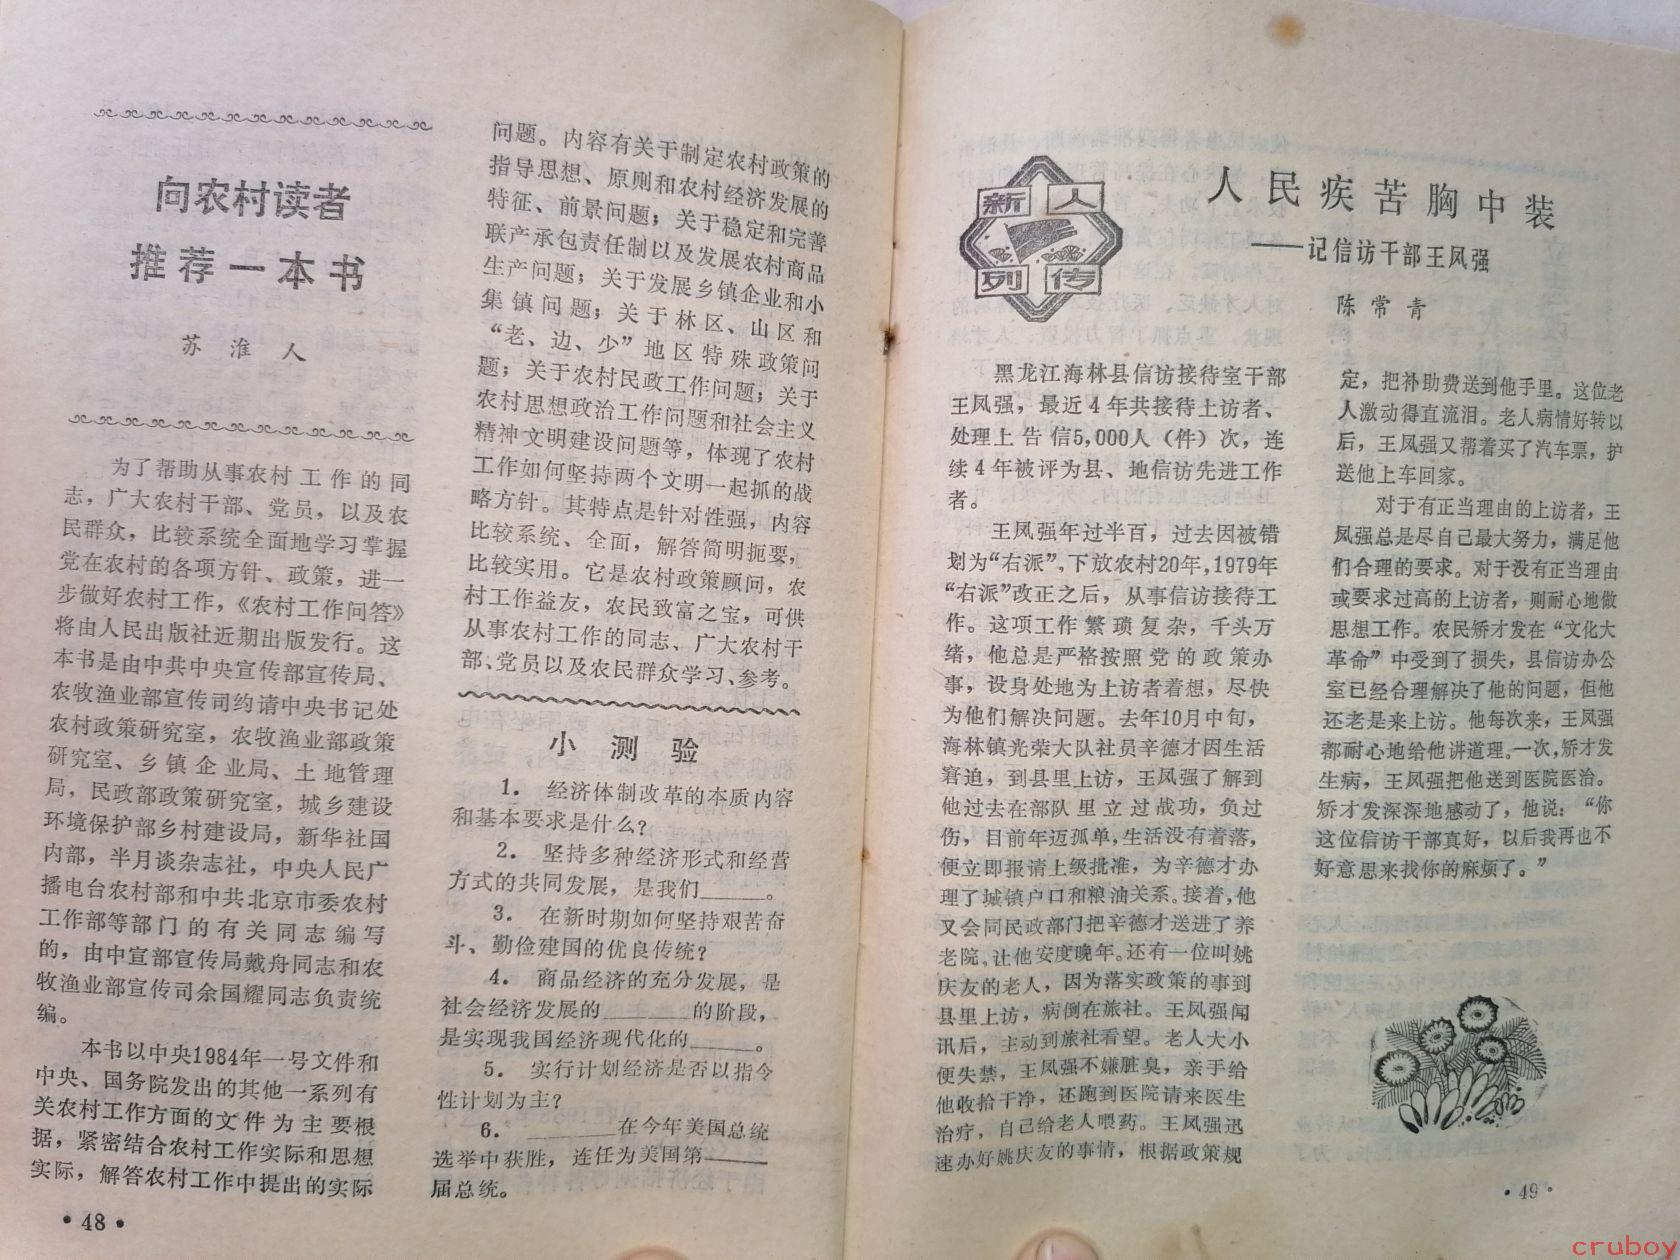 向农村读者
推荐一本书
苏淮人
为了帮助从事农村工作的同
志，广大农村干部、党员，以及农
民群众，比较系统全面地学习掌握
党在农村的各项方针、政策，进一
步做好农村工作，《农村工作问答》
将由人民出版社近期出版发行。这
本书是由中共中央宣传部宣传局、
农牧渔业部宣传司约请中央书记处
农村政策研究室，农牧渔业部政策
研究室、乡镇企业局、土地管理
局，民政部政策研究室，城乡建设
环境保护部乡村建设局，新华社国
内部，半月谈杂志社，中央人民广
播电台农村部和中共北京市委农村
工作部等部门的有关同志编写
的，由中宣部宣传局戴舟同志和农
牧渔业部宣传司余国耀同志负责统
编。
本书以中央1984年一号文件和
中央、国务院发出的其他一系列有
关农村工作方面的文件为主要根
据，紧密结合农村工作实际和思想
实际，解答农村工作中提出的实际
·48·
问题。内容有关于制定农村政策的
指导思想、原则和农村经济发展的
特征、前景问题；关于稳定和完善
联产承包责任制以及发展农村商品
生产问题；关于发展乡镇企业和小
集镇问题；关于林区、山区和
“老、边、少”地区特殊政策问
题；关于农村民政工作问题；关于
农村思想政治工作问题和社会主义
精神文明建设问题等，体现了农村
工作如何坚持两个文明一起抓的战
略方针。其特点是针对性强，内容
比较系统、全面，解答简明扼要，
比较实用。它是农村政策顾问，农
村工作益友，农民致富之宝，可供
从事农村工作的同志、广大农村干
部、党员以及农民群众学习、参考。
小测验
1．经济体制改革的本质内容
和基本要求是什么？
2．坚持多种经济形式和经营
方式的共同发展，是我们______。
3．在新时期如何坚持艰苦奋
斗、勤俭建国的优良传统？
4．商品经济的充分发展，是
社会经济发展的________的阶段，
是实现我国经济现代化的______。
5．实行计划经济是否以指令
性计划为主？
6．________在今年美国总统
选举中获胜，连任为美国第______
届总统。
新人
列传
人民疾苦胸中装
——记信访干部王凤强
陈常青
黑龙江海林县信访接待室干部
王凤强，最近4年共接待上访者、
处理上告信5,000人（件）次，连
续4年被评为县、地信访先进工作
者。
王凤强年过半百，过去因被错
划为“右派”，下放农村20年，1979年
“右派”改正之后，从事信访接待工
作。这项工作繁琐复杂，千头万
绪，他总是严格按照党的政策办
事，设身处地为上访者着想，尽快
为他们解决问题。去年10月中旬，
海林镇光荣大队社员辛德才因生活
窘迫，到县里上访，王凤强了解到
他过去在部队里立过战功，负过
伤，目前年迈孤单，生活没有着落，
便立即报请上级批准，为辛德才办
理了城镇户口和粮油关系。接着，他
又会同民政部门把辛德才送进了养
老院，让他安度晚年。还有一位叫姚
庆友的老人，因为落实政策的事到
县里上访，病倒在旅社。王凤强闻
讯后，主动到旅社看望。老人大小
便失禁，王凤强不嫌脏臭，亲手给
他收拾干净，还跑到医院请来医生
治疗，自己给老人喂药。王凤强迅
速办好姚庆友的事情，根据政策规
定，把补助费送到他手里。这位老
人激动得直流泪。老人病情好转以
后，王凤强又帮着买了汽车票，护
送他上车回家。
对于有正当理由的上访者，王
凤强总是尽自己最大努力，满足他
们合理的要求。对于没有正当理由
或要求过高的上访者，则耐心地做
思想工作。农民矫才发在“文化大
革命”中受到了损失，县信访办公
室已经合理解决了他的问题，但他
还老是来上访。他每次来，王凤强
都耐心地给他讲道理。一次，矫才发
生病，王凤强把他送到医院医治。
矫才发深深地感动了，他说：“你
这位信访干部真好，以后我再也不
好意思来找你的麻烦了。”
·49·
cruboy